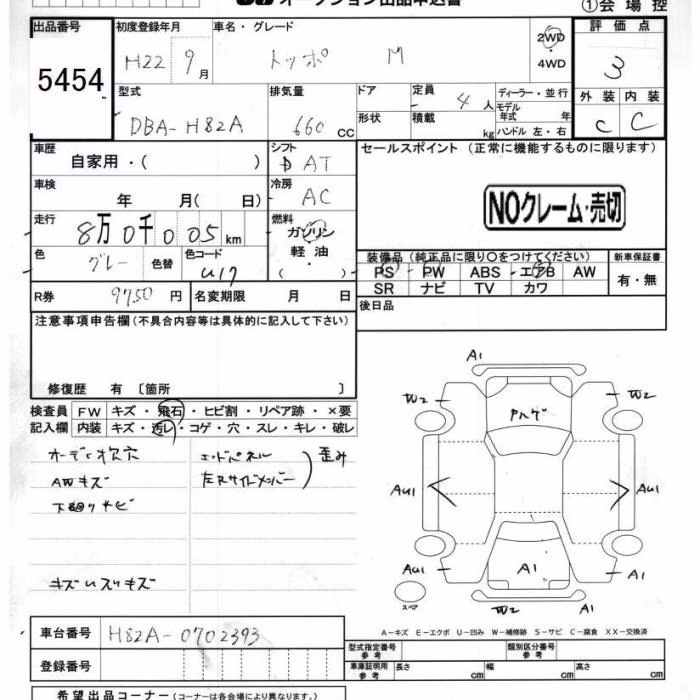 オークション出品申込書
①会場控
出品番号
5454
初度登録年月
H22 9月
車名・グレード
トッポ M
2WD
4WD
評価点
3
型式
DBA-H82A
排気量
660 CC
ドア
形状
定員
4 人
積載
kg
ディーラー・並行
モデル年式 年
ハンドル 左・右
外装 内装
C C
車歴
自家用・( )
シフト
D AT
セールスポイント (正常に機能するものに限ります)
NOクレーム・売切
車検
年 月( 日)
冷房
AC
走行
8万0千005km
燃料
ガソリン
軽油
( )
色
グレー
色替
色コード
U17
装備品 (純正品に限り○をつけてください)
PS PW ABS エアB AW
SR ナビ TV カワ
新車保証書
有・無
R券 9750 円 名変期限 月 日
後日品
注意事項申告欄 (不具合内容等は具体的に記入して下さい)
修復歴 有 〔箇所 〕
検査員記入欄
FW キズ・飛石・ヒビ割・リペア跡・×要
内装 キズ・汚レ・コゲ・穴・スレ・キレ・破レ
オーディオ欠穴
AWキズ
下廻りサビ
キズ
エンドパネル
左Rサイドメンバー
歪み
A1
W2 W2
Aハゲ
AU1 AU1
AU1 A1 A1
W2 A1
スペア
A-キズ E-エクボ U-凹み W-補修跡 S-サビ C-腐食 XX-交換済
車台番号 H82A-0702393
登録番号
型式指定番号 参考
類別区分番号 参考
車庫証明用 参考 長さ cm 幅 cm 高さ cm
希望出品コーナー (コーナーは各会場により異なります。)